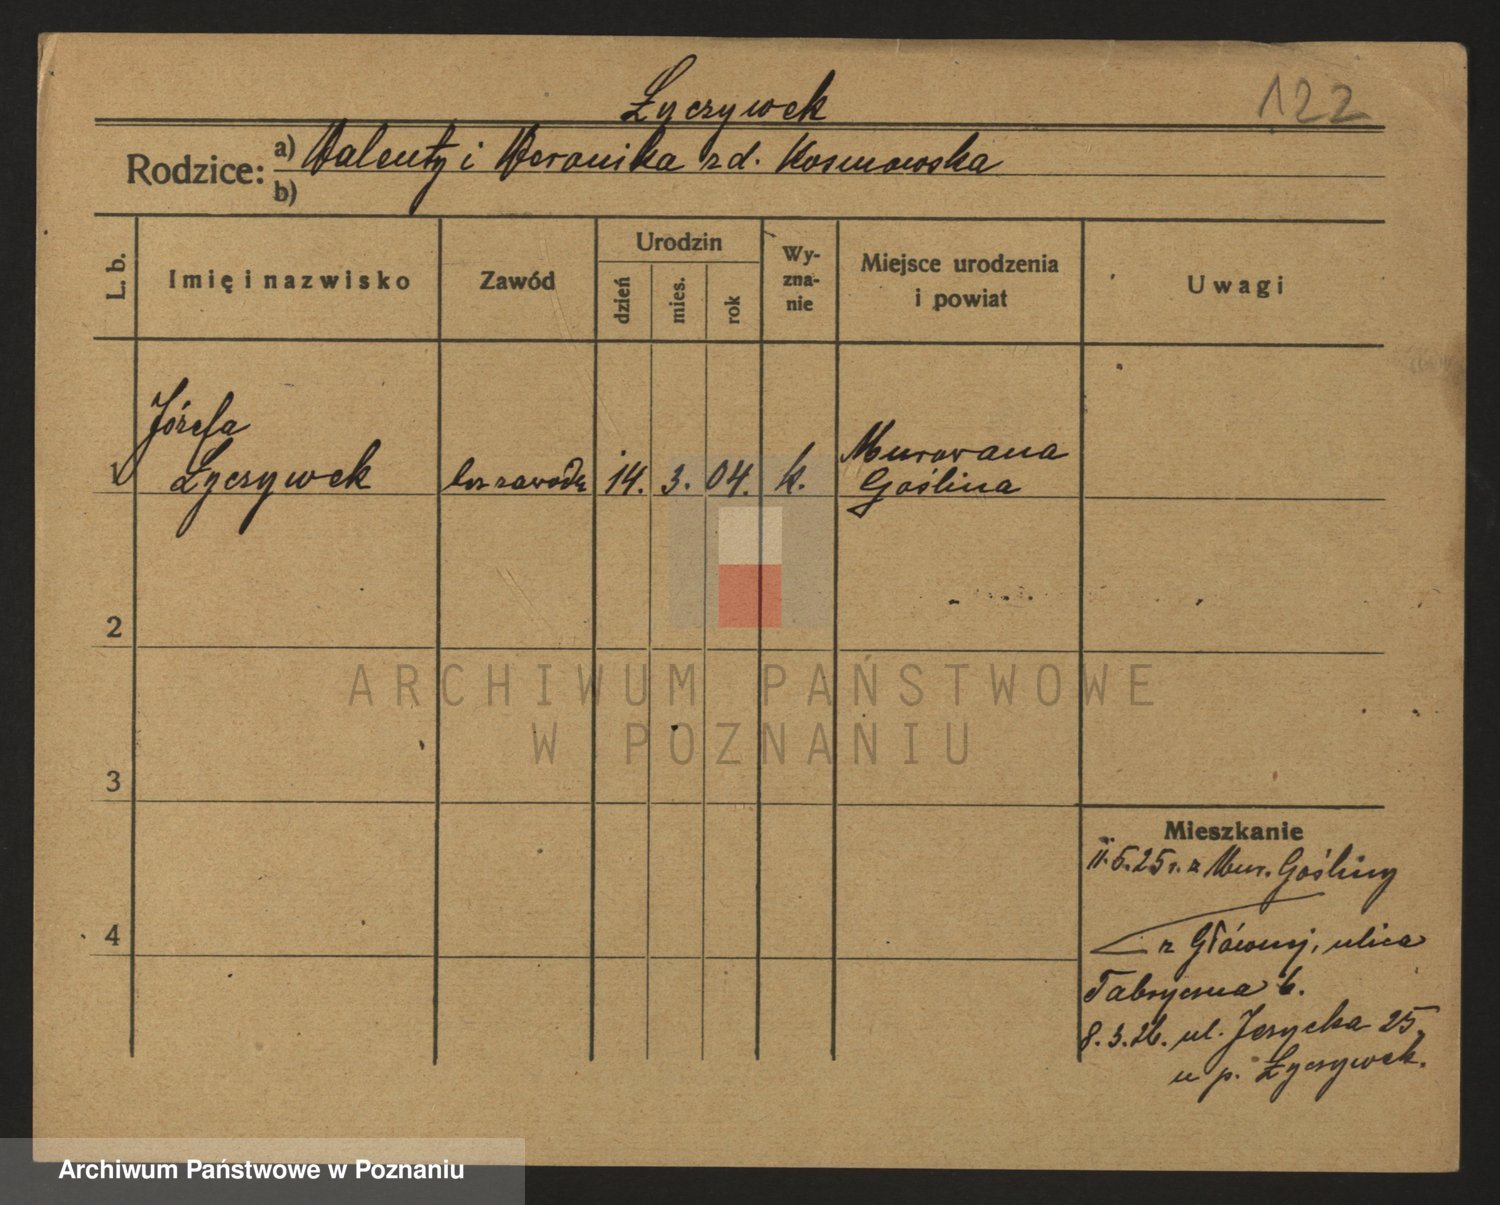 122
Łyczywek
Rodzice: a) Walenty i Weronika zd. Kosmowska
b)
L. b.
Imię i nazwisko
Zawód
Urodzin
dzień
mies.
rok
Wy-
zna-
nie
Miejsce urodzenia
i powiat
Uwagi
Józefa
1 Łyczywek bez zawodu 14. 3. 04. k. Murowana
Goślina
2
3
4
ARCHIWUM PAŃSTWOWE
W POZNANIU
Mieszkanie
11.5.25 r. z Mur. Gośliny
z Głównej, ulica
Fabryczna 6.
8.3.26. ul. Jeżycka 25,
u p. Łyczywek.
Archiwum Państwowe w Poznaniu